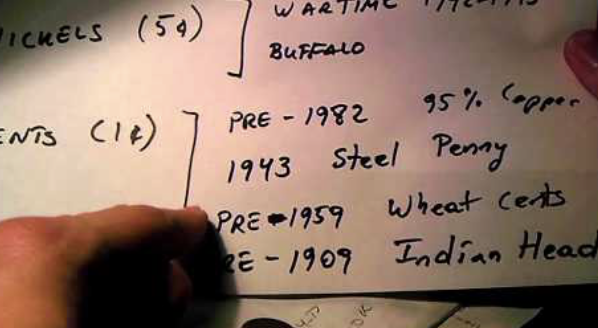 NICKELS (5¢) ] WARTIME 1942-1945
BUFFALO
CENTS (1¢) ] PRE - 1982 95% Copper
1943 Steel Penny
PRE-1959 Wheat Cents
PRE - 1909 Indian Head